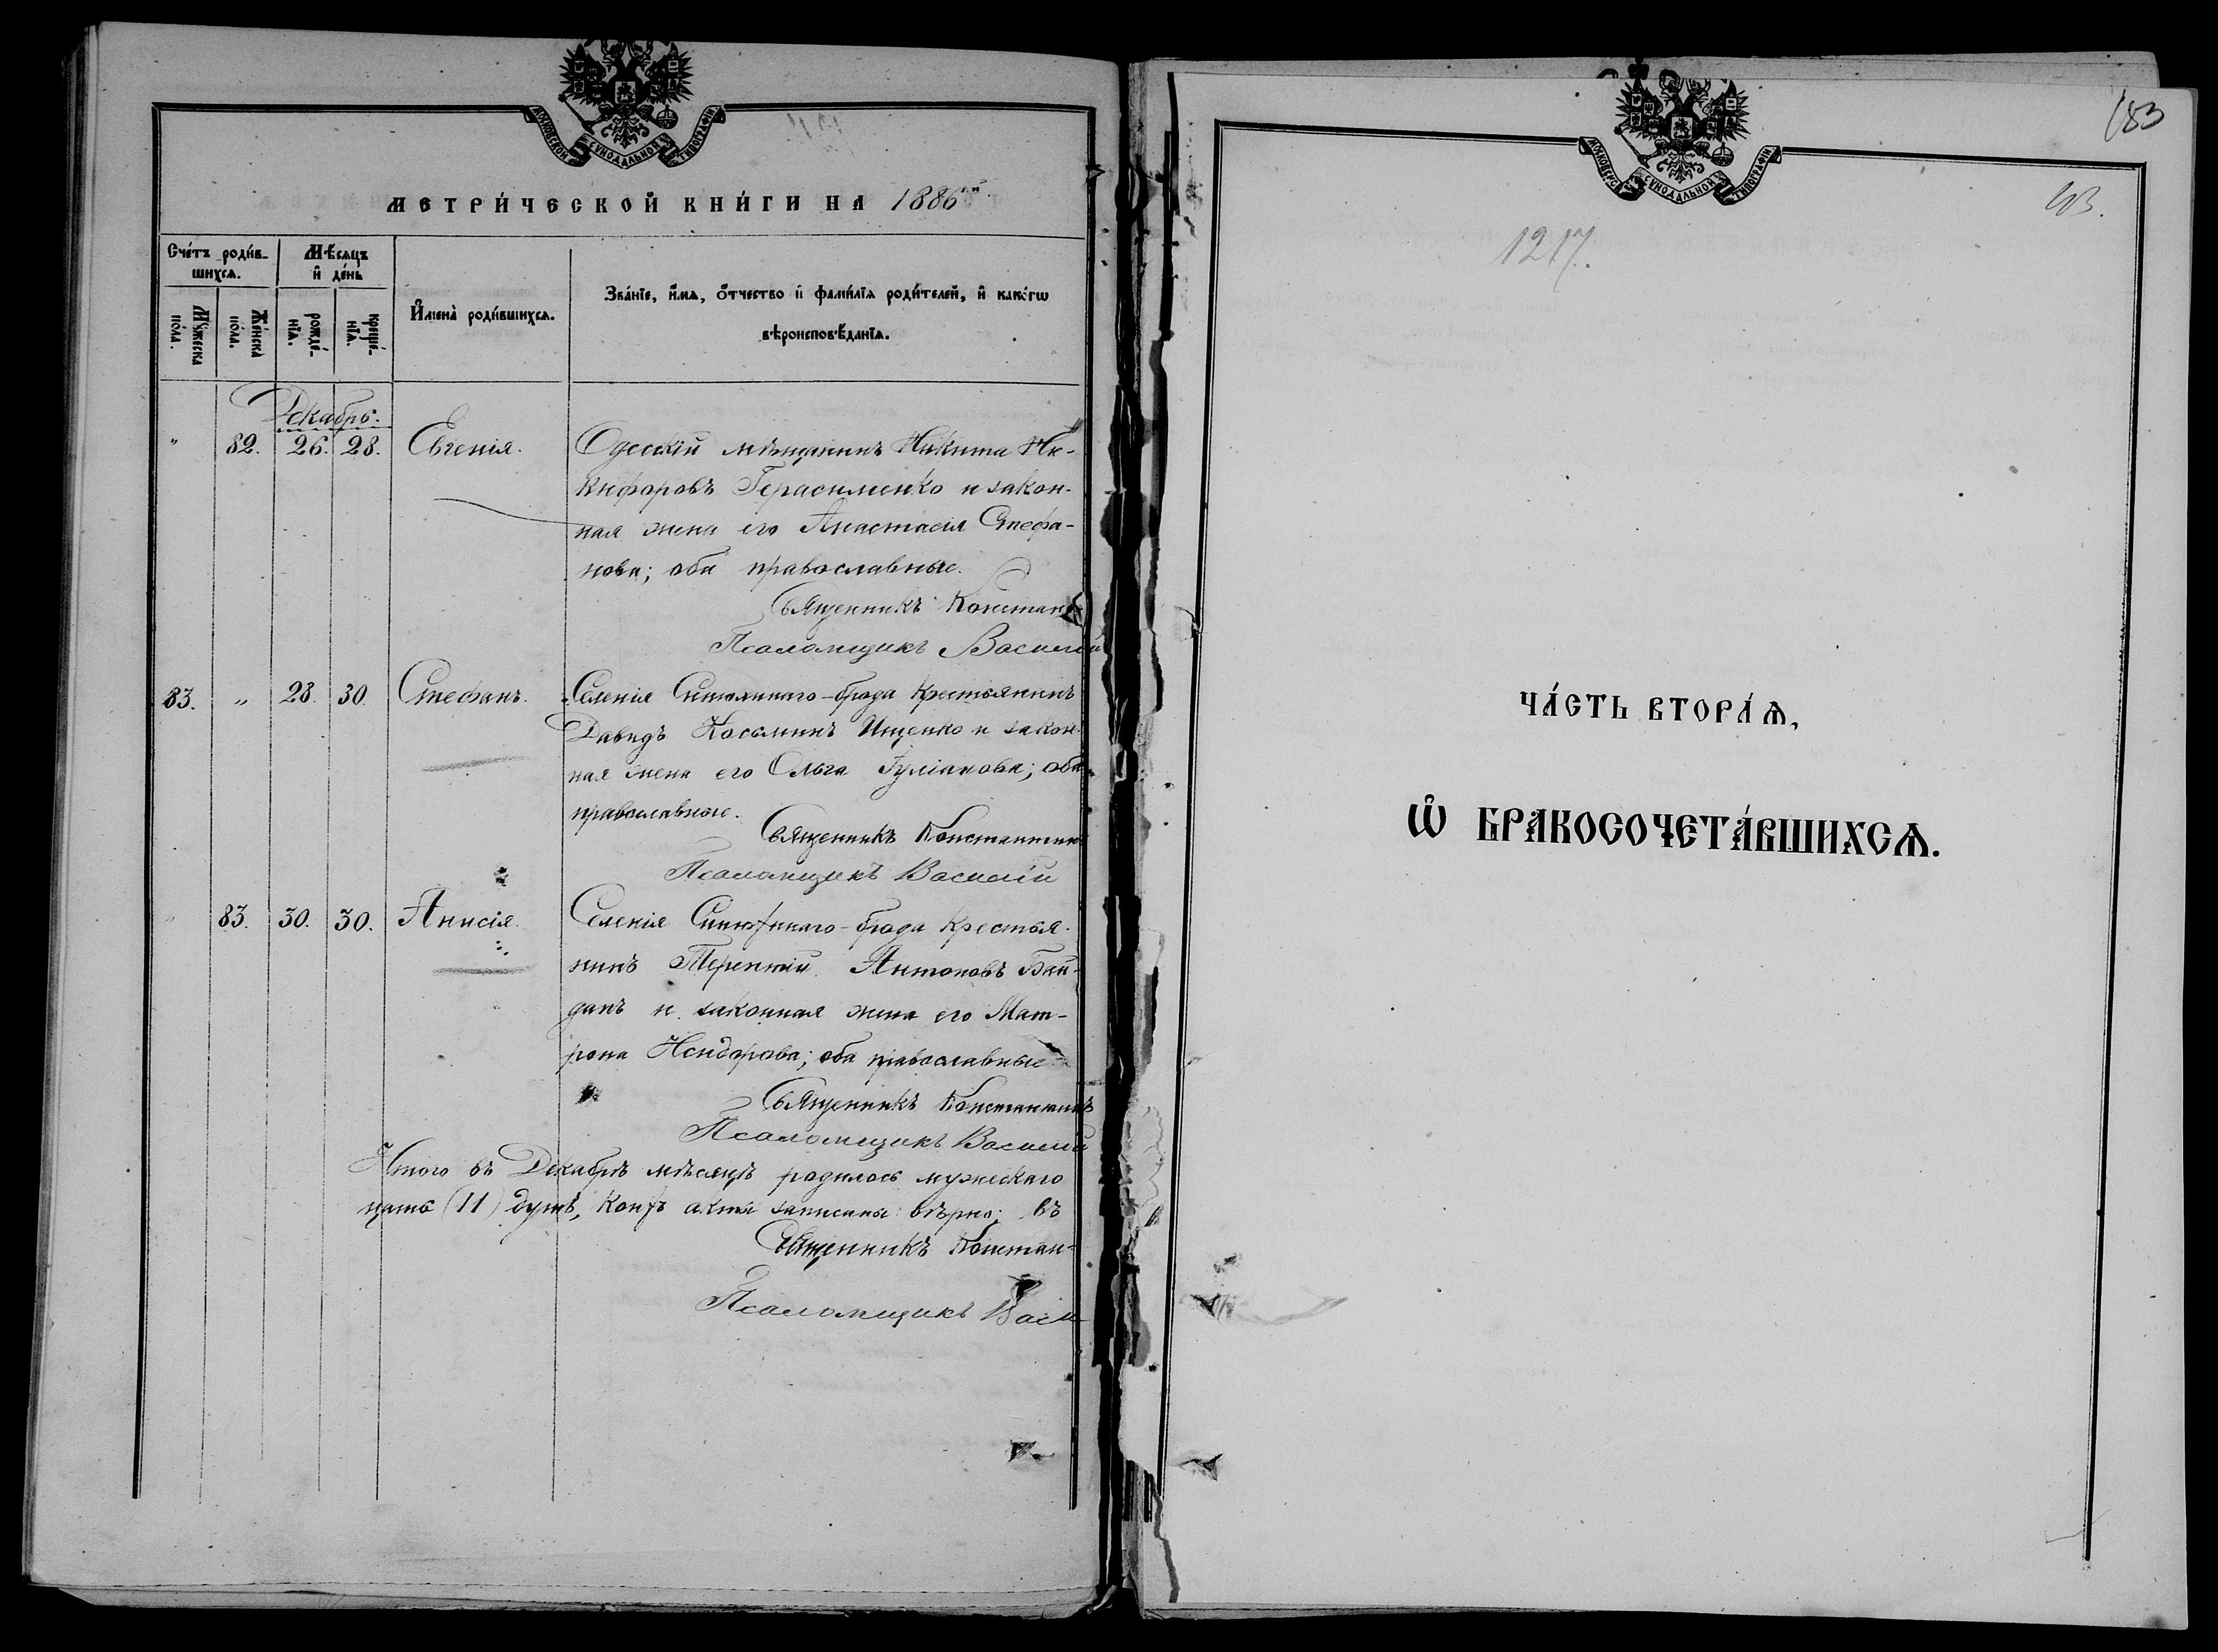 МОСКОВСКОЙ СУНОДАЛЬНОЙ ТИПОГРАФІИ
МЕТРИ́ЧЕСКОЙ КНИ́ГИ НА 1886
Сче́тъ роди́в-
шихся.
Мѣ́сяцъ
и҆ де́нь
Мꙋ́жеска
по́ла.
Же́нска
по́ла.
рожде́-
нїѧ.
креще́-
нїѧ.
И҆мена̀ роди́вшихсѧ.
Зва́нїе, и҆́мѧ, ѻ҆́тчество и҆ фами́лїѧ роди́телей, и҆ како́гѡ
вѣроисповѣ́данїѧ.
Декабрь.
" 82. 26. 28. Евгенія. Одесскій мѣщанинъ Никита Ни-
кифоровъ Герасименко и закон-
ная жена его Анастасія Стефа-
нова; оба православные.
Священникъ Констан
Псаломщикъ Василій
83. " 28. 30. Стефанъ. Селенія Синюхинаго-брода крестьянинъ
Давидъ Косьминъ Ищенко и закон-
ная жена его Ольга Гуліанова; оба
православные.
Священникъ Константинъ
Псаломщикъ Василій
" 83. 30. 30. Анисія. Селенія Синюхинаго-брода крестья-
нинъ Терентій Антоновъ Бай-
данъ и законная жена его Мат-
рона Исидорова; оба православные
Священникъ Константинъ
Псаломщикъ Василій
Итого въ Декабрѣ мѣсяцѣ родилось мужескаго
цать (11) душъ, коихъ акты записаны вѣрно; въ
Священникъ Констан-
Псаломщикъ Васи
183
МОСКОВСКОЙ СУНОДАЛЬНОЙ ТИПОГРАФІИ
1217.
ЧА́СТЬ ВТОРА́Ѧ,
Ѡ҆ БРАКОСОЧЕТА́ВШИХСѦ.